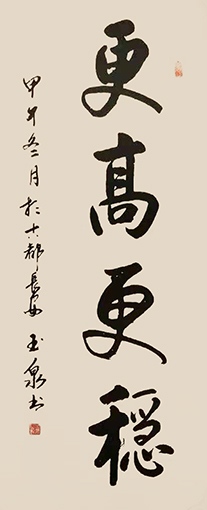 更高更穩
甲午冬月於古都長安 玉泉書